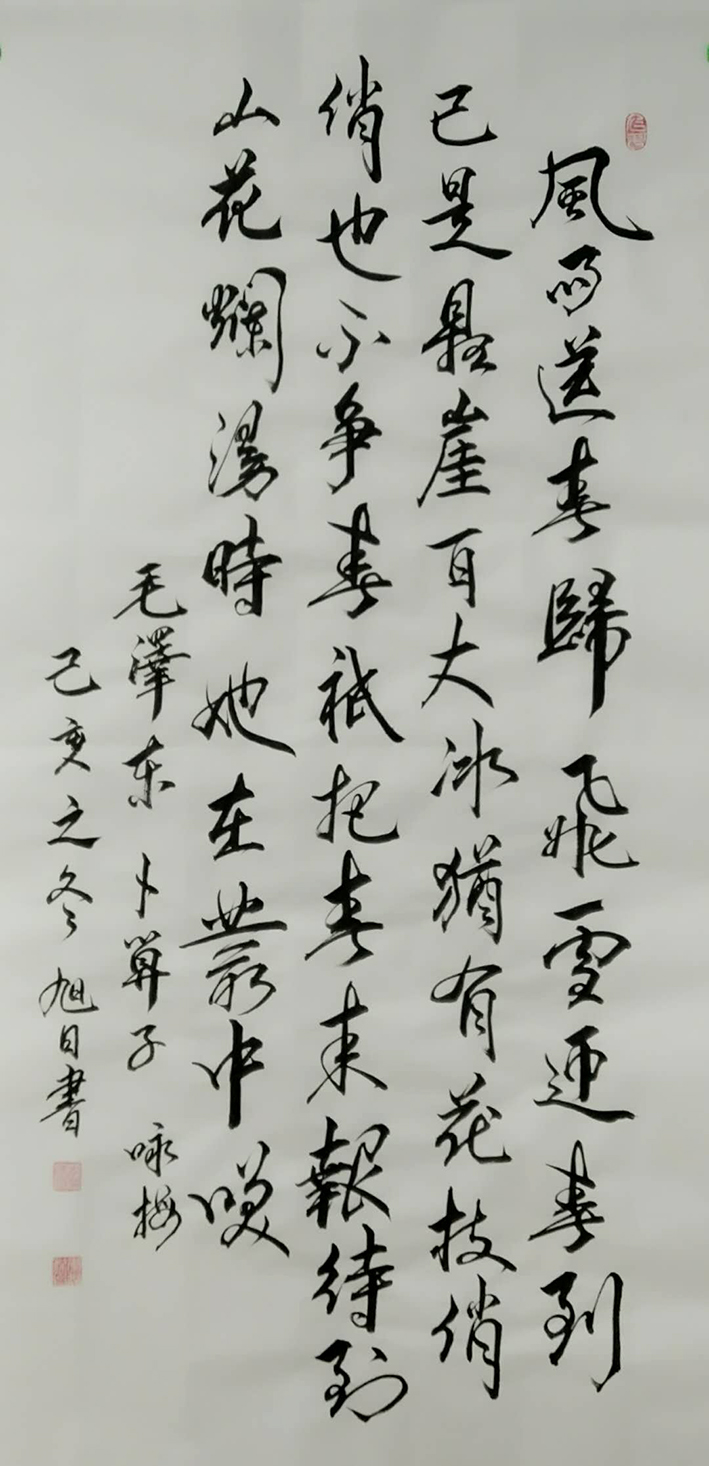 風雨送春歸飛雪迎春到
已是懸崖百丈冰猶有花枝俏
俏也不争春祇把春来報待到
山花爛漫時她在叢中笑
毛澤东卜算子咏梅
己亥之冬旭日書